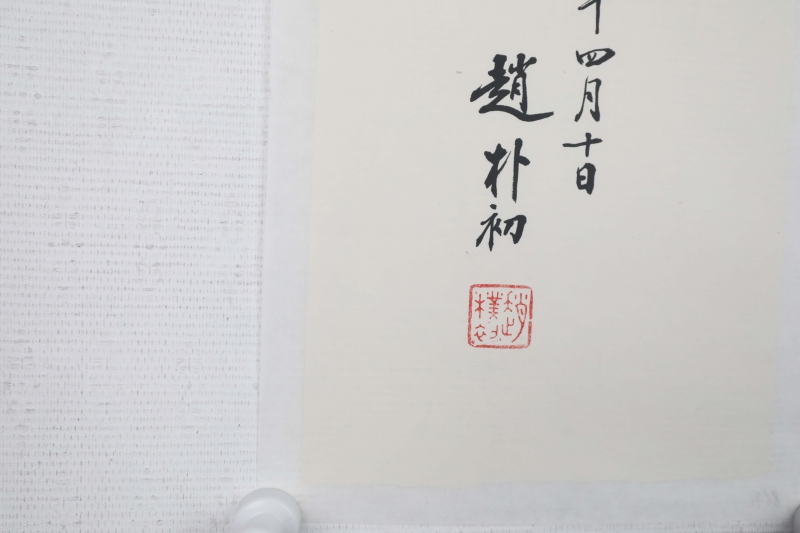 四月十日
趙朴初
趙樸初